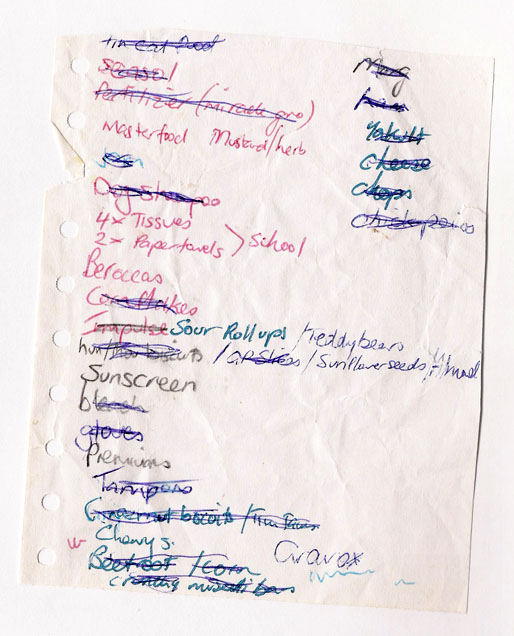 tin cat food
seasol
fertilizer (miracle gro)
Masterfood Mustard/herb
jam
Dog Shampoo
4x Tissues
2x Papertowels > School
Beroccas
Corn flakes
Impulse Sour Roll ups / Teddybears
/ Sunflower seeds
Sunscreen
bleach
gloves
Premiums
Tampons
biscuits / Tim Tams
Chewy s.
Beetroot / Corn
Gravox
crunchy muesli bars
Mug
Yakult
Cheese
chops
chick peas